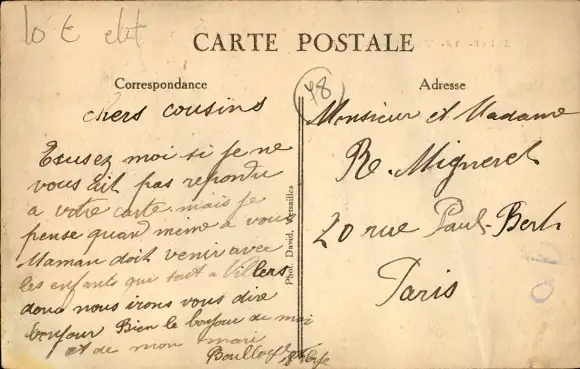 10 €
CARTE POSTALE
Correspondance
chers cousins
Exusez moi si je ne
vous ait pas repondu
a votre carte mais je
pense quand meme a vous
Maman doit venir avec
les enfants qui sont a Villers
donc nous irons vous dire
bonjour Bien le bonjour de moi
et de mon mari
Phot. David, Versailles
78
Adresse
Monsieur et Madame
R. Migneret
20 rue Paul-Bert
Paris